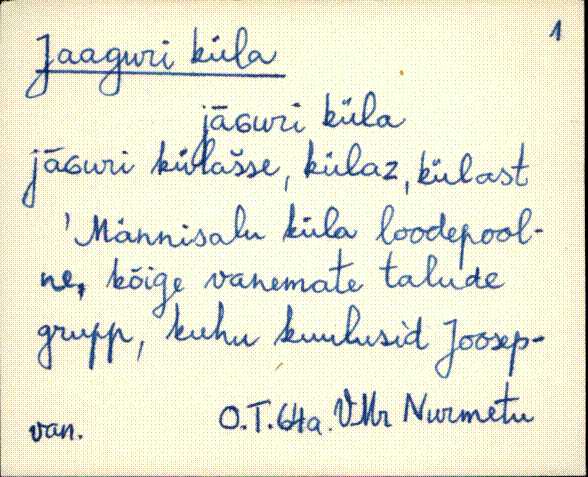 1
Jaaguri küla
jāGuri küla
jāGuri külašse, külaz, külast
'Männisalu küla loodepool-
ne, kõige vanemate talude
grupp, kuhu kuulusid Joosep-
van. O.T.64a. VMr Nurmetu